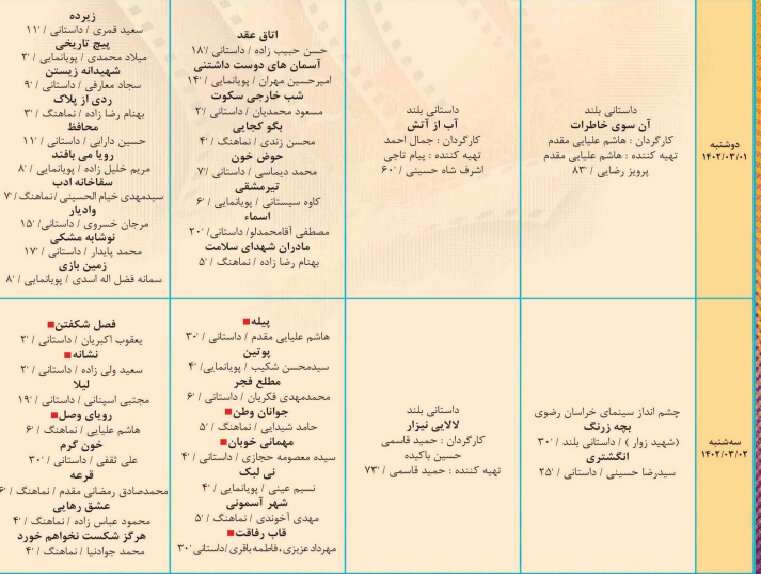 دوشنبه
۱۴۰۲/۰۳/۰۱
داستانی بلند
آن سوی خاطرات
کارگردان : هاشم علیایی مقدم
تهیه کننده : هاشم علیایی مقدم
پرویز رضایی / ۸۳'
داستانی بلند
آب از آتش
کارگردان : جمال احمد
تهیه کننده : پیام تاجی
اشرف شاه حسینی / ۶۰'
اتاق عقد
حسن حبیب زاده / داستانی / ۱۸'
آسمان های دوست داشتنی
امیرحسین مهران / پویانمایی / ۱۴'
شب خارجی سکوت
مسعود محمدیان / داستانی / ۲'
بگو کجایی
محسن زندی / نماهنگ / ۴'
حوض خون
محمد دیماسی / داستانی / ۷'
تیرمشقی
کاوه سیستانی / پویانمایی / ۶'
اسماء
مصطفی آقامحمدلو/ داستانی / ۲۰'
مادران شهدای سلامت
بهنام رضا زاده / نماهنگ / ۵'
زیرده
سعید قمری / داستانی / ۱۱'
پیچ تاریخی
میلاد محمدی / پویانمایی / ۲'
شهیدانه زیستن
سجاد معارفی / داستانی / ۹'
ردی از پلاک
بهنام رضا زاده / نماهنگ / ۳'
محافظ
حسین دارابی / داستانی / ۱۱'
رویا می بافند
مریم خلیل زاده / پویانمایی / ۸'
سقاخانه ادب
سیدمهدی خیام الحسینی / نماهنگ / ۷'
وادیار
مرجان خسروی / داستانی / ۱۵'
نوشابه مشکی
محمد پایدار / داستانی / ۱۷'
زمین بازی
سمانه فضل اله اسدی / پویانمایی / ۸'
سه شنبه
۱۴۰۲/۰۳/۰۲
چشم انداز سینمای خراسان رضوی
بچه زرنگ
(شهید زوار) / داستانی بلند / ۳۰'
انگشتری
سیدرضا حسینی / داستانی / ۲۵'
داستانی بلند
لالایی نیزار
کارگردان : حمید قاسمی
حسین باکیده
تهیه کننده : حمید قاسمی / ۷۳'
پیله
هاشم علیایی مقدم / داستانی / ۳۰'
پوتین
سیدمحسن شکیب / پویانمایی / ۴'
مطلع فجر
محمدمهدی فکریان / داستانی / ۶'
جوانان وطن
حامد شیدایی / نماهنگ / ۵'
مهمانی خوبان
سیده معصومه حجازی / داستانی / ۴'
نی لبک
نسیم عینی / پویانمایی / ۴'
شهر آسمونی
مهدی آخوندی / نماهنگ / ۵'
قاب رفاقت
مهرداد عزیزی، فاطمه باقری / داستانی ۳۰'
فصل شکفتن
یعقوب اکبریان / داستانی / ۲'
نشانه
سعید ولی زاده / داستانی / ۲'
لیلا
مجتبی اسپنانی / داستانی / ۱۹'
رویای وصل
هاشم علیایی / نماهنگ / ۶'
خون گرم
علی ثقفی / داستانی / ۳۰'
قرعه
محمدصادق رمضانی مقدم / نماهنگ / ۶'
عشق رهایی
محمود عباس زاده / نماهنگ / ۴'
هرگز شکست نخواهم خورد
محمد جوادنیا / نماهنگ / ۴'